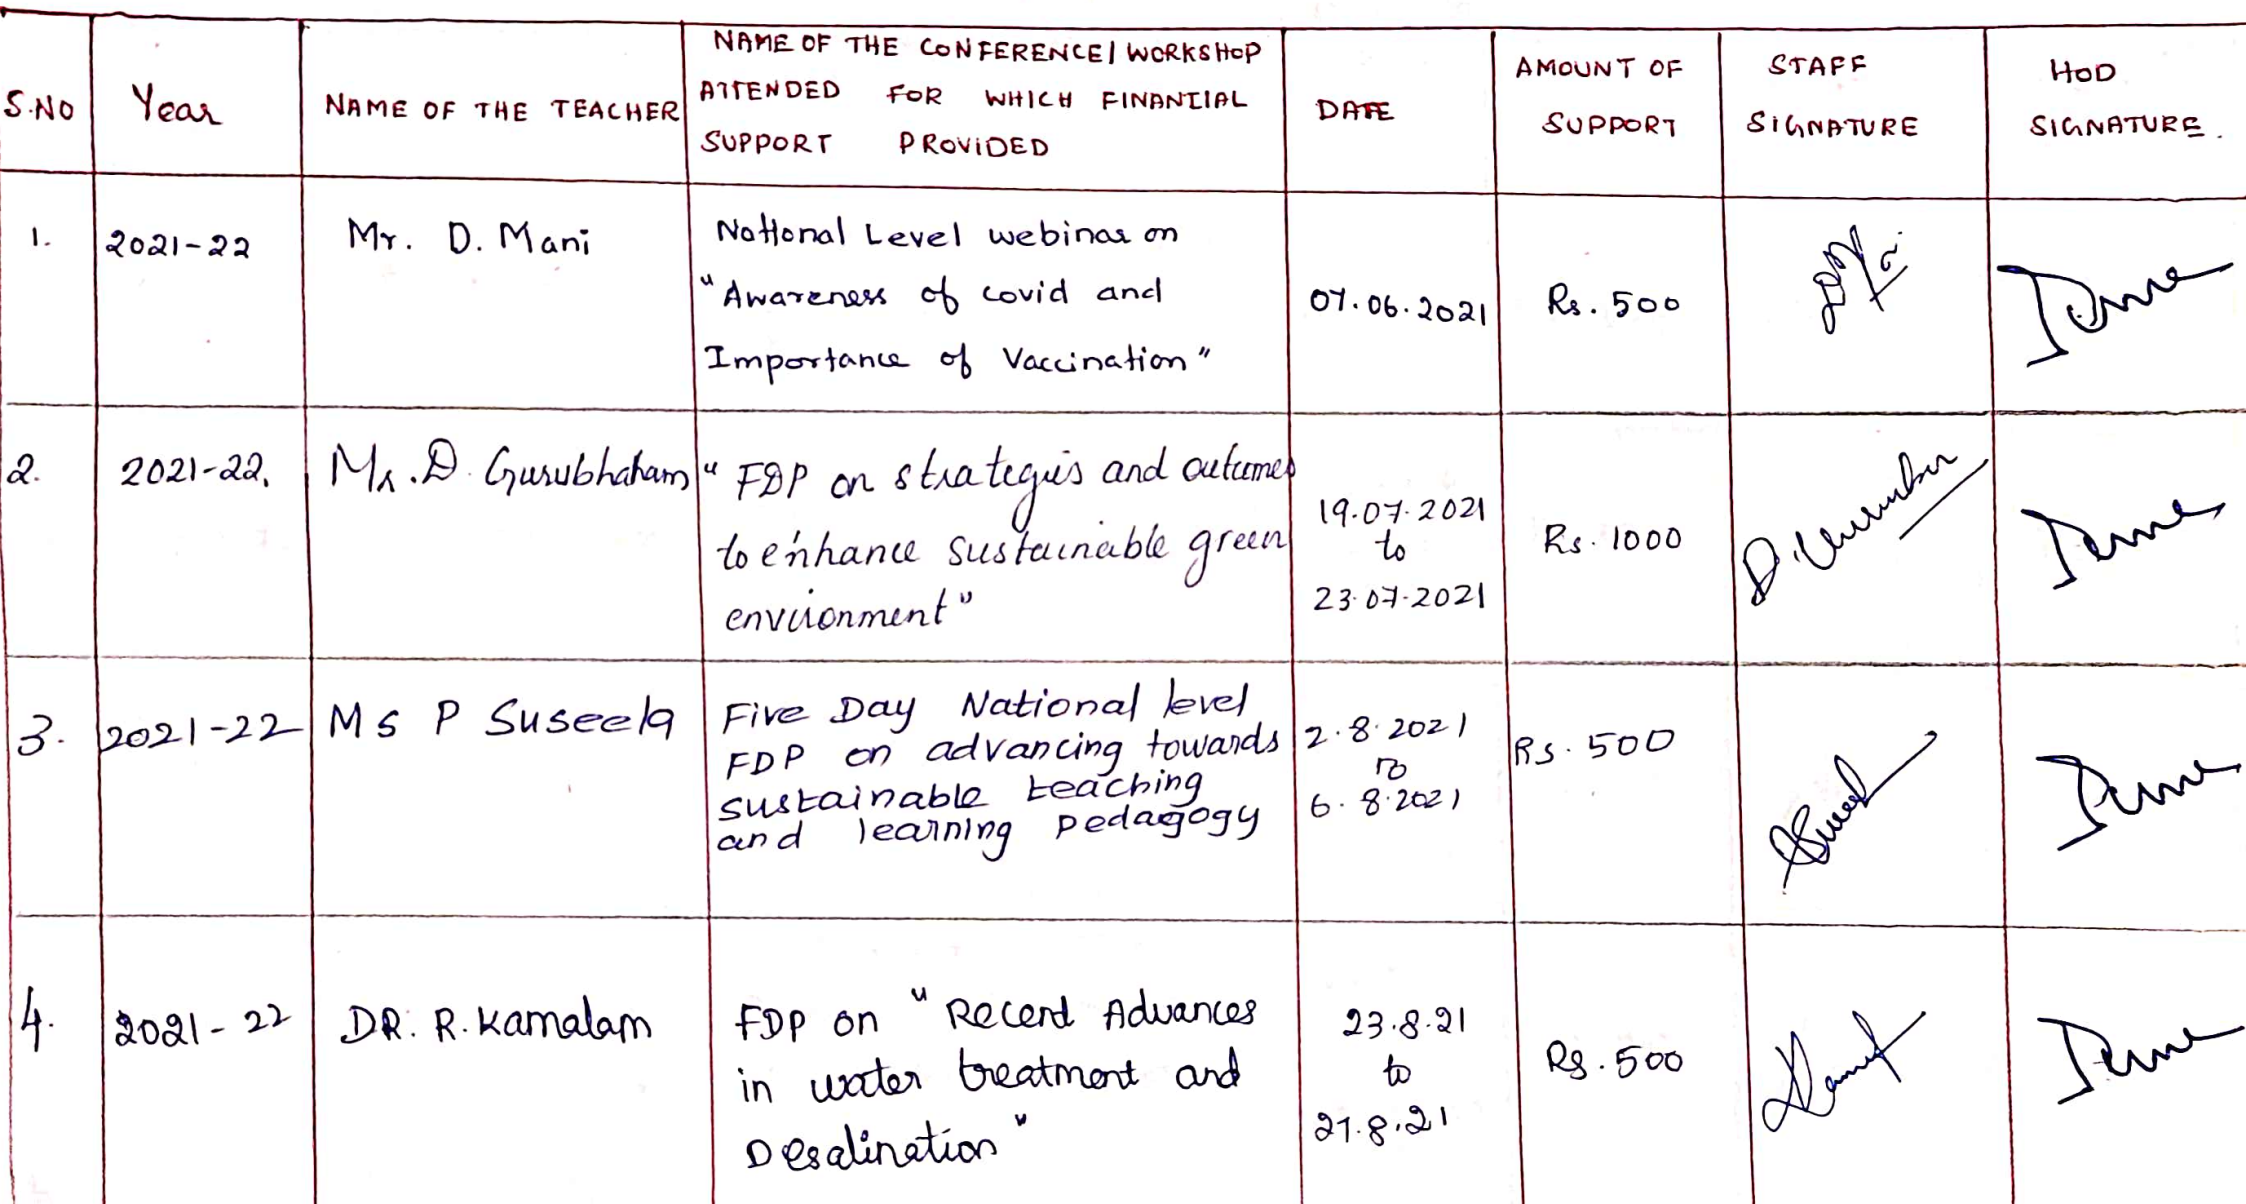 S.NO
Year
NAME OF THE TEACHER
NAME OF THE CONFERENCE/ WORKSHOP
ATTENDED FOR WHICH FINANCIAL
SUPPORT PROVIDED
DATE
AMOUNT OF
SUPPORT
STAFF
SIGNATURE
HOD
SIGNATURE.
1.
2021-22
Mr. D. Mani
National Level webinar on
"Awareness of covid and
Importance of Vaccination"
07.06.2021
Rs. 500
2.
2021-22.
Mr. D. Gurubhaham
"FDP on strategies and outcomes
to enhance sustainable green
environment"
19.07.2021
to
23.07.2021
Rs. 1000
3.
2021-22
MS P Suseela
Five Day National level
FDP on advancing towards
sustainable teaching
and learning pedagogy
2.8.2021
to
6.8.2021
Rs. 500
4.
2021-22
DR. R. Kamalam
FDP on "Recent Advances
in water treatment and
Desalination"
23.8.21
to
27.8.21
Rs. 500